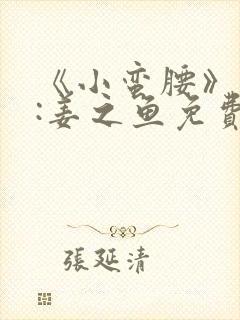 《小蛮腰》
:姜之鱼免費
張延清